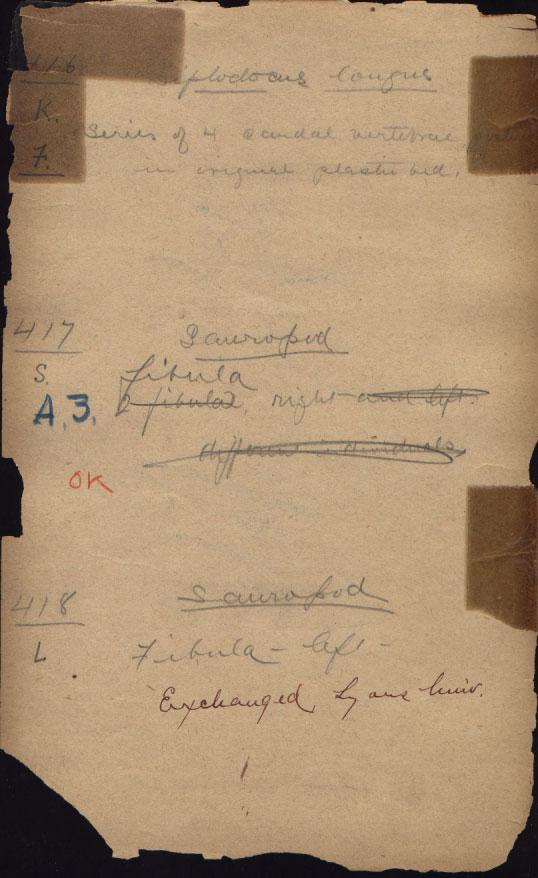 416 Diplodocus longus
K.
7.
Series of 4 caudal vertebrae,
in original plastic bed.
417 Sauropod
S. fibula
2 fibulae, right and left.
A, 3,
different individuals
OK
418 Sauropod
L Fibula - left -
Exchanged Lyons Univ.